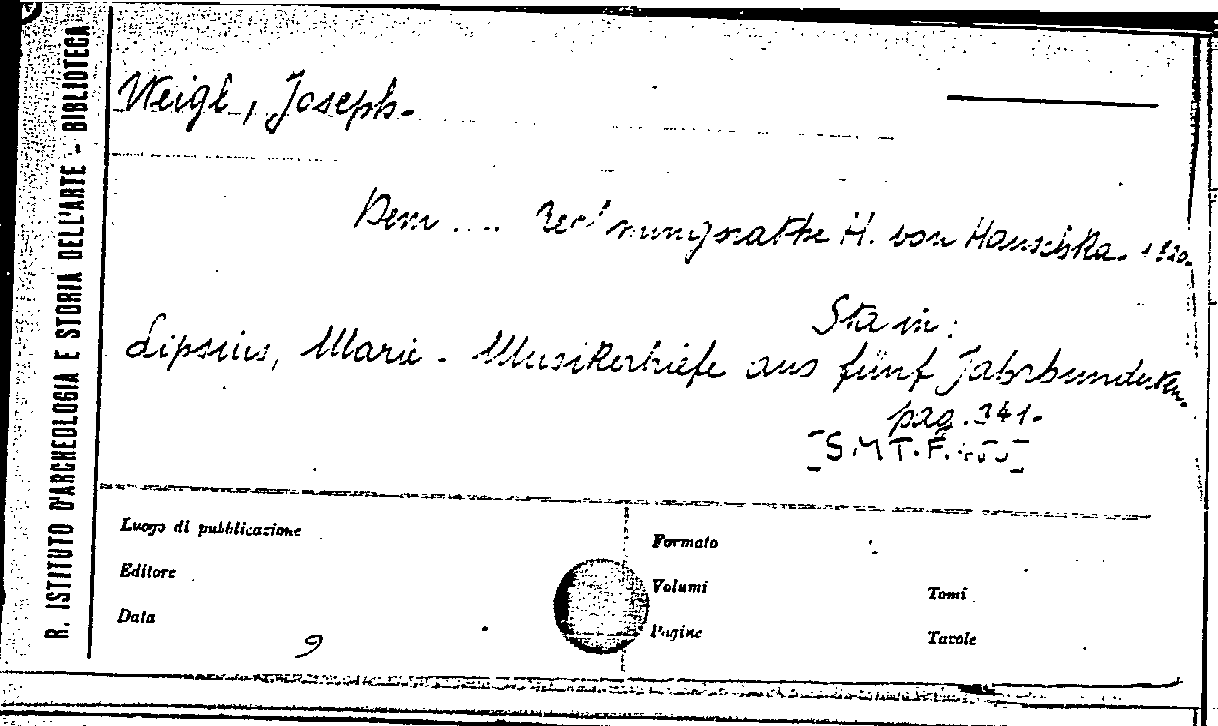 R. ISTITUTO D'ARCHEOLOGIA E STORIA DELL'ARTE - BIBLIOTECA
Weigl, Joseph.
Dem .... Rechnungsrathe H. von Hauschka. 1820.
Sta in:
Lipsius, Marie - Musikerbriefe aus fünf Jahrhunderten.
pag. 341.
[S.M T.F.
Luogo di pubblicazione
Formato
Editore
Volumi
Tomi
Data
Pagine
Tavole
9